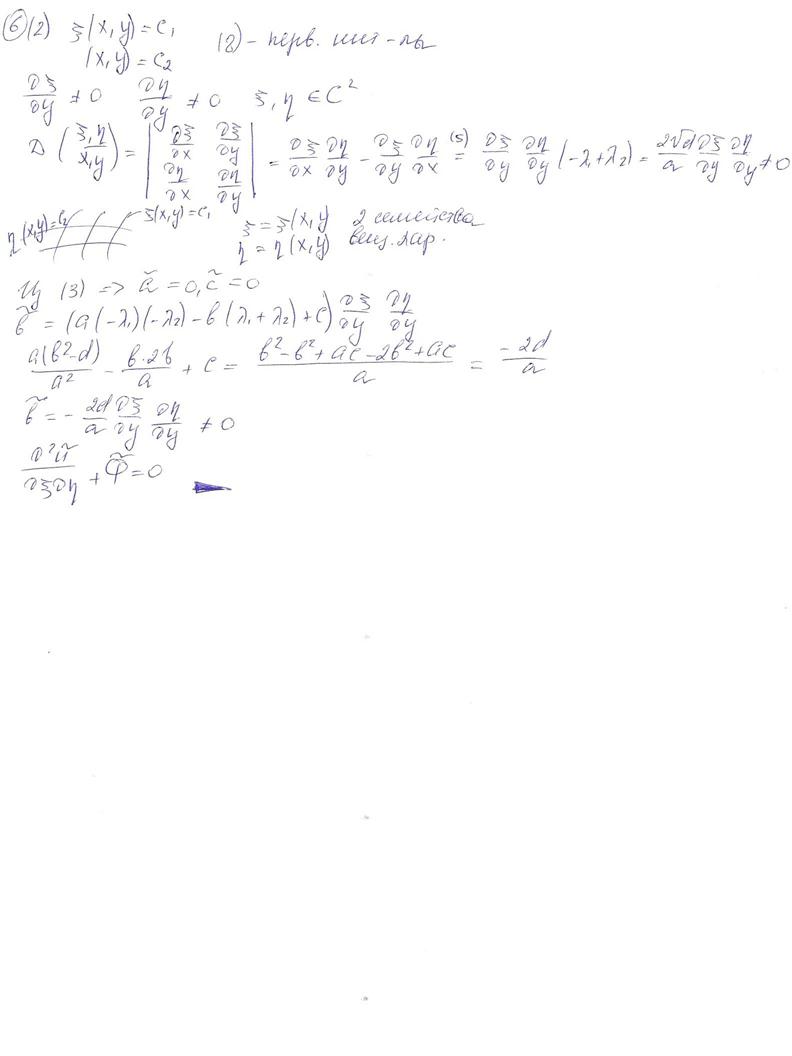 ⑥(2) ξ(x,y) = C₁
(x,y) = C₂ (8) - перв. инт-лы
∂ξ/∂y ≠ 0 ∂η/∂y ≠ 0 ξ, η ∈ C²
D (ξ,η / x,y) = | ∂ξ/∂x ∂ξ/∂y ; ∂η/∂x ∂η/∂y | = ∂ξ/∂x ∂η/∂y - ∂ξ/∂y ∂η/∂x =⁽⁵⁾ ∂ξ/∂y ∂η/∂y (-λ₁+λ₂) = 2√d/a ∂ξ/∂y ∂η/∂y ≠ 0
η(x,y)=C₂ ξ(x,y)=C₁ ξ = ξ(x,y 2 семейства
η = η(x,y) вещ. хар.
Из (3) => ã = 0, c̃ = 0
b̃ = (a(-λ₁)(-λ₂) - b(λ₁+λ₂) + c) ∂ξ/∂y ∂η/∂y
a(b²-d)/a² - b·2b/a + c = b²-b²+ac-2b²+ac/a = -2d/a
b̃ = - 2d/a ∂ξ/∂y ∂η/∂y ≠ 0
∂²ũ/∂ξ∂η + Φ̃ = 0